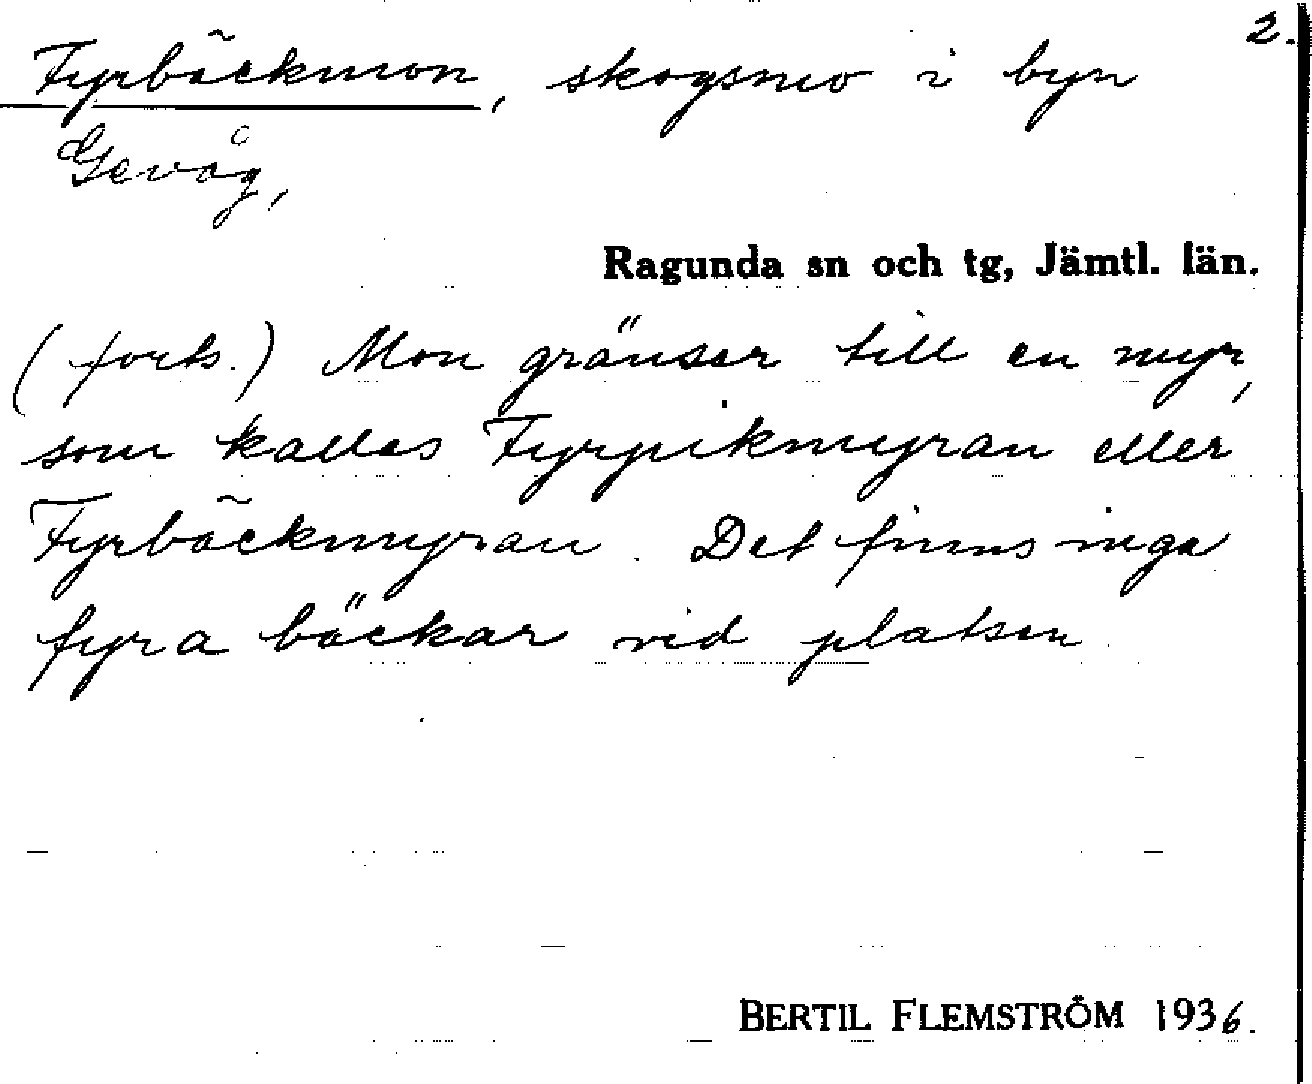 2.
Fyrbäckmon, skogsmo i byn
Gevåg,
Ragunda sn och tg, Jämtl. län.
(forts.) Mon gränser till en myr,
som kallas Fyrpikmyran eller
Fyrbäckmyran. Det finns inga
fyra bäckar vid platsen.
BERTIL FLEMSTRÖM 1936.